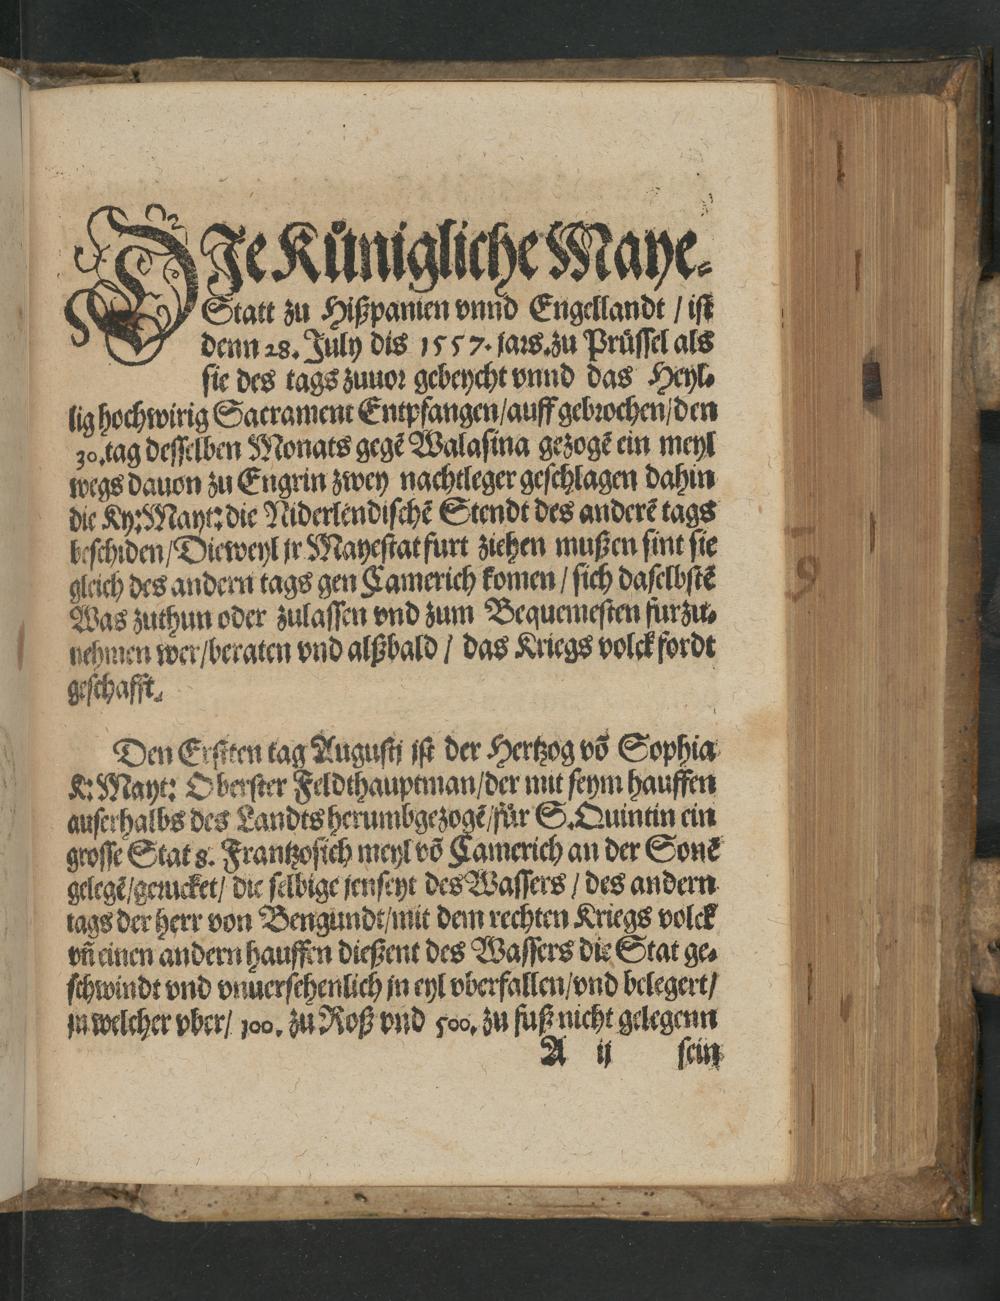 DIe Kůnigliche Maye⸗
Statt zu Hißpanien vnnd Engellandt / ist
denn 28. July dis 1557. jars.zu Prüssel als
sie des tags zuuor gebeycht vnnd das Heyl⸗
lig hochwirig Sacrament Entpfangen/auff gebrochen/den
30.tag desselben Monats gegē Walasina gezogē ein meyl
wegs dauon zu Engrin zwey nachtleger geschlagen dahin
die Ky:Mayt: die Niderlendischē Stendt des anderē tags
beschiden/Dieweyl jr Mayestat furt ziehen mußen sint sie
gleich des andern tags gen Camerich komen / sich daselbstē
Was zuthun oder zulassen vnd zum Bequemesten furzu⸗
nehmen wer/beraten vnd alßbald / das Kriegs volck fordt
geschafft.
Den Ersten tag Augusti ist der Hertzog vō Sophia
K: Mayt: Oberster Feldthauptman/der mit seym hauffen
auserhalbs des Landts herumbgezogē/für S.Quintin ein
grosse Stat 8. Frantzosich meyl vō Camerich an der Sonē
gelegē/gerucket/ die selbige jenseyt des Wassers / des andern
tags der herr von Bengundt/mit dem rechten Kriegs volck
vñ einen andern hauffen dießent des Wassers die Stat ge⸗
schwindt vnd vnuersehenlich jn eyl vberfallen/vnd belegert/
jn welcher vber/ 300. zu Roß vnd 500. zu fuß nicht gelegenn
A ij sein